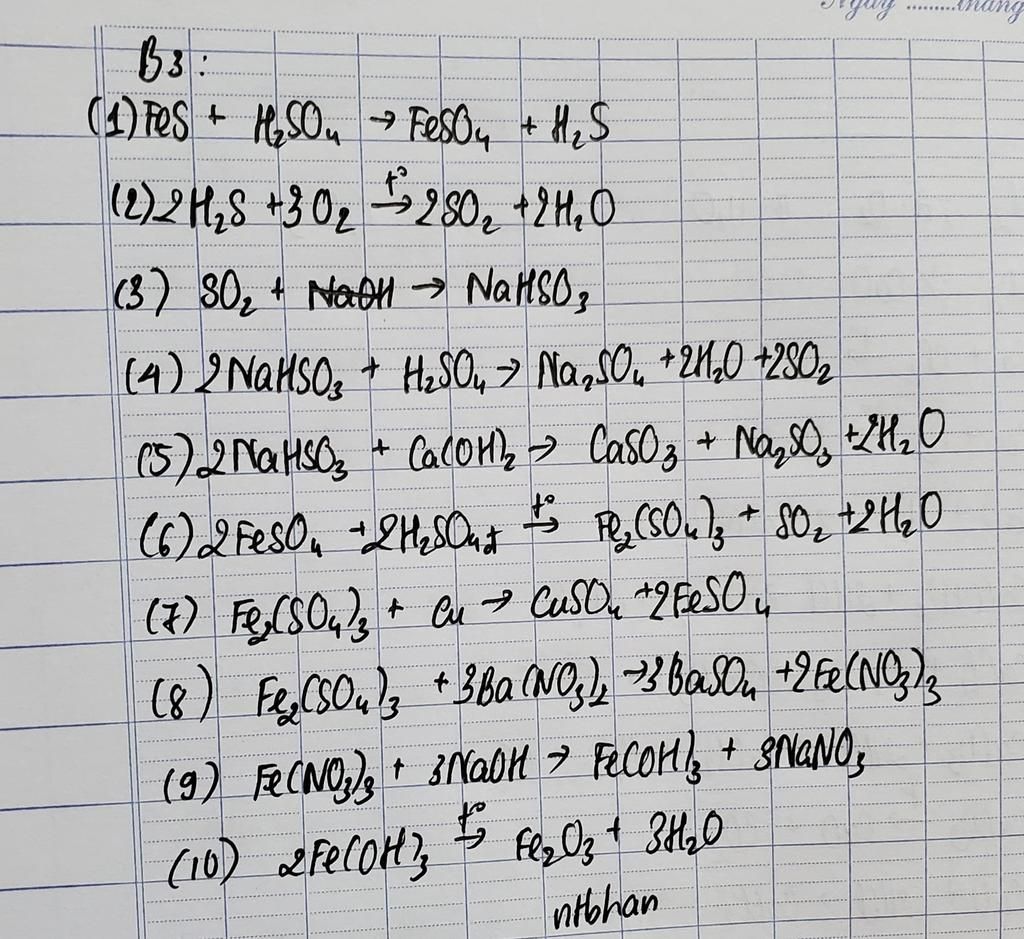 Ngày .........tháng
B3:
(1) FeS + H₂SO₄ → FeSO₄ + H₂S
(2) 2H₂S + 3O₂ t°→ 2SO₂ + 2H₂O
(3) SO₂ + NaOH → NaHSO₃
(4) 2NaHSO₃ + H₂SO₄ → Na₂SO₄ + 2H₂O + 2SO₂
(5) 2NaHSO₃ + Ca(OH)₂ → CaSO₃ + Na₂SO₃ + 2H₂O
(6) 2FeSO₄ + 2H₂SO₄đ t°→ Fe₂(SO₄)₃ + SO₂ + 2H₂O
(7) Fe₂(SO₄)₃ + Cu → CuSO₄ + 2FeSO₄
(8) Fe₂(SO₄)₃ + 3Ba(NO₃)₂ → 3BaSO₄ + 2Fe(NO₃)₃
(9) Fe(NO₃)₃ + 3NaOH → Fe(OH)₃ + 3NaNO₃
(10) 2Fe(OH)₃ t°→ Fe₂O₃ + 3H₂O
ntbhan